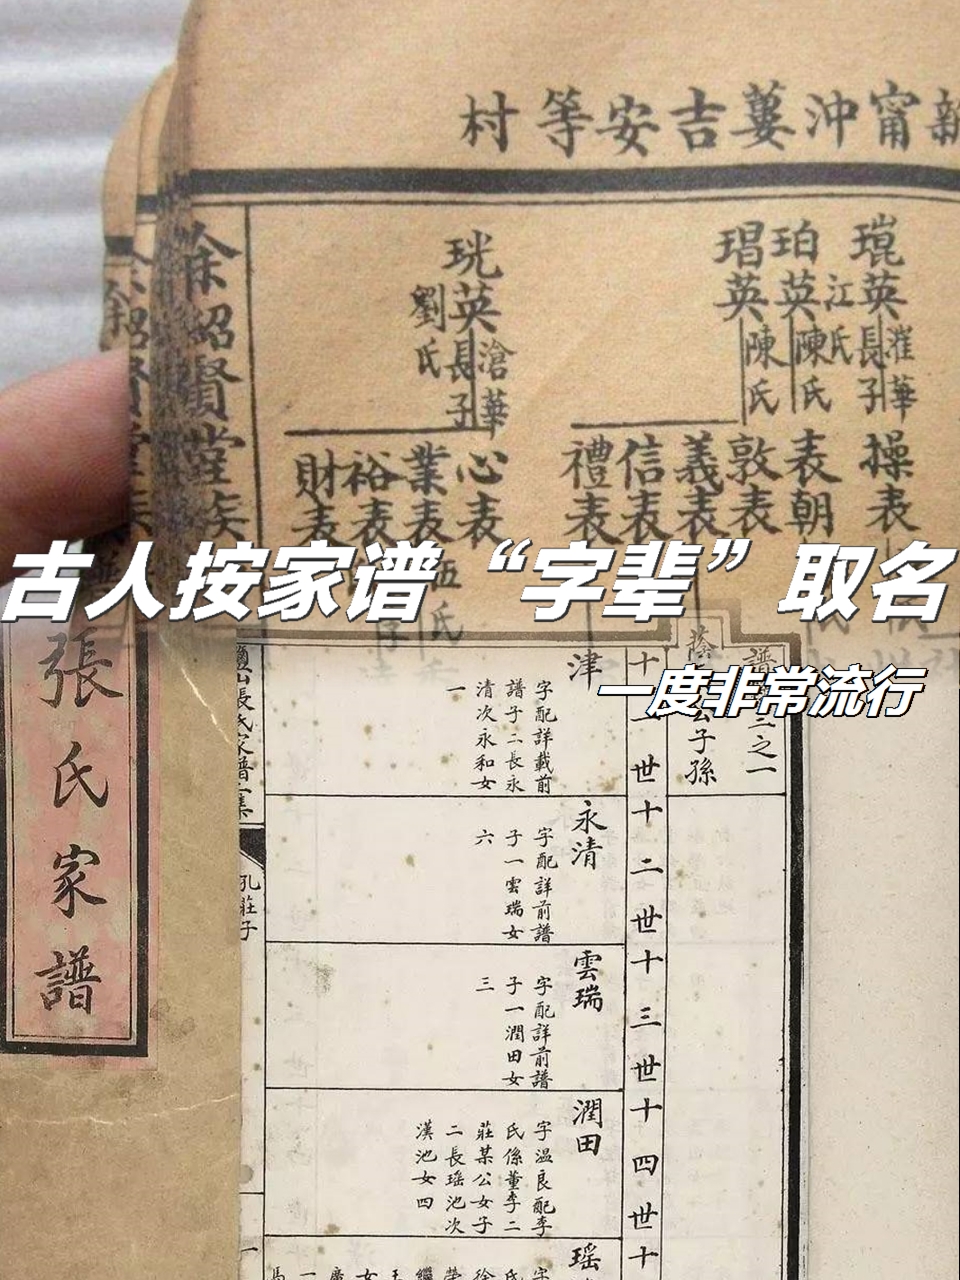 新甯沖蔞吉安等村
琨英
灌華長子
江氏
珀英
陳氏
琩英
陳氏
珖英
滄華長子
劉氏
操表
表朝
敦表
義表
信表
禮表
心表
業表
裕表
財表
伍氏
徐紹賢堂
古人按家谱“字辈”取名
一度非常流行
張氏家譜
之一
公子孫
十一世
津
字配詳載前
譜子二長永
清次永和女
一
十二世
永清
字配詳前譜
子一雲瑞女
六
十三世
雲瑞
字配詳前譜
子一潤田女
三
十四世
潤田
字温良配李
氏係董李二
莊某公女子
二長瑶池次
漢池女四
十
瑶
張氏家譜
孔莊子